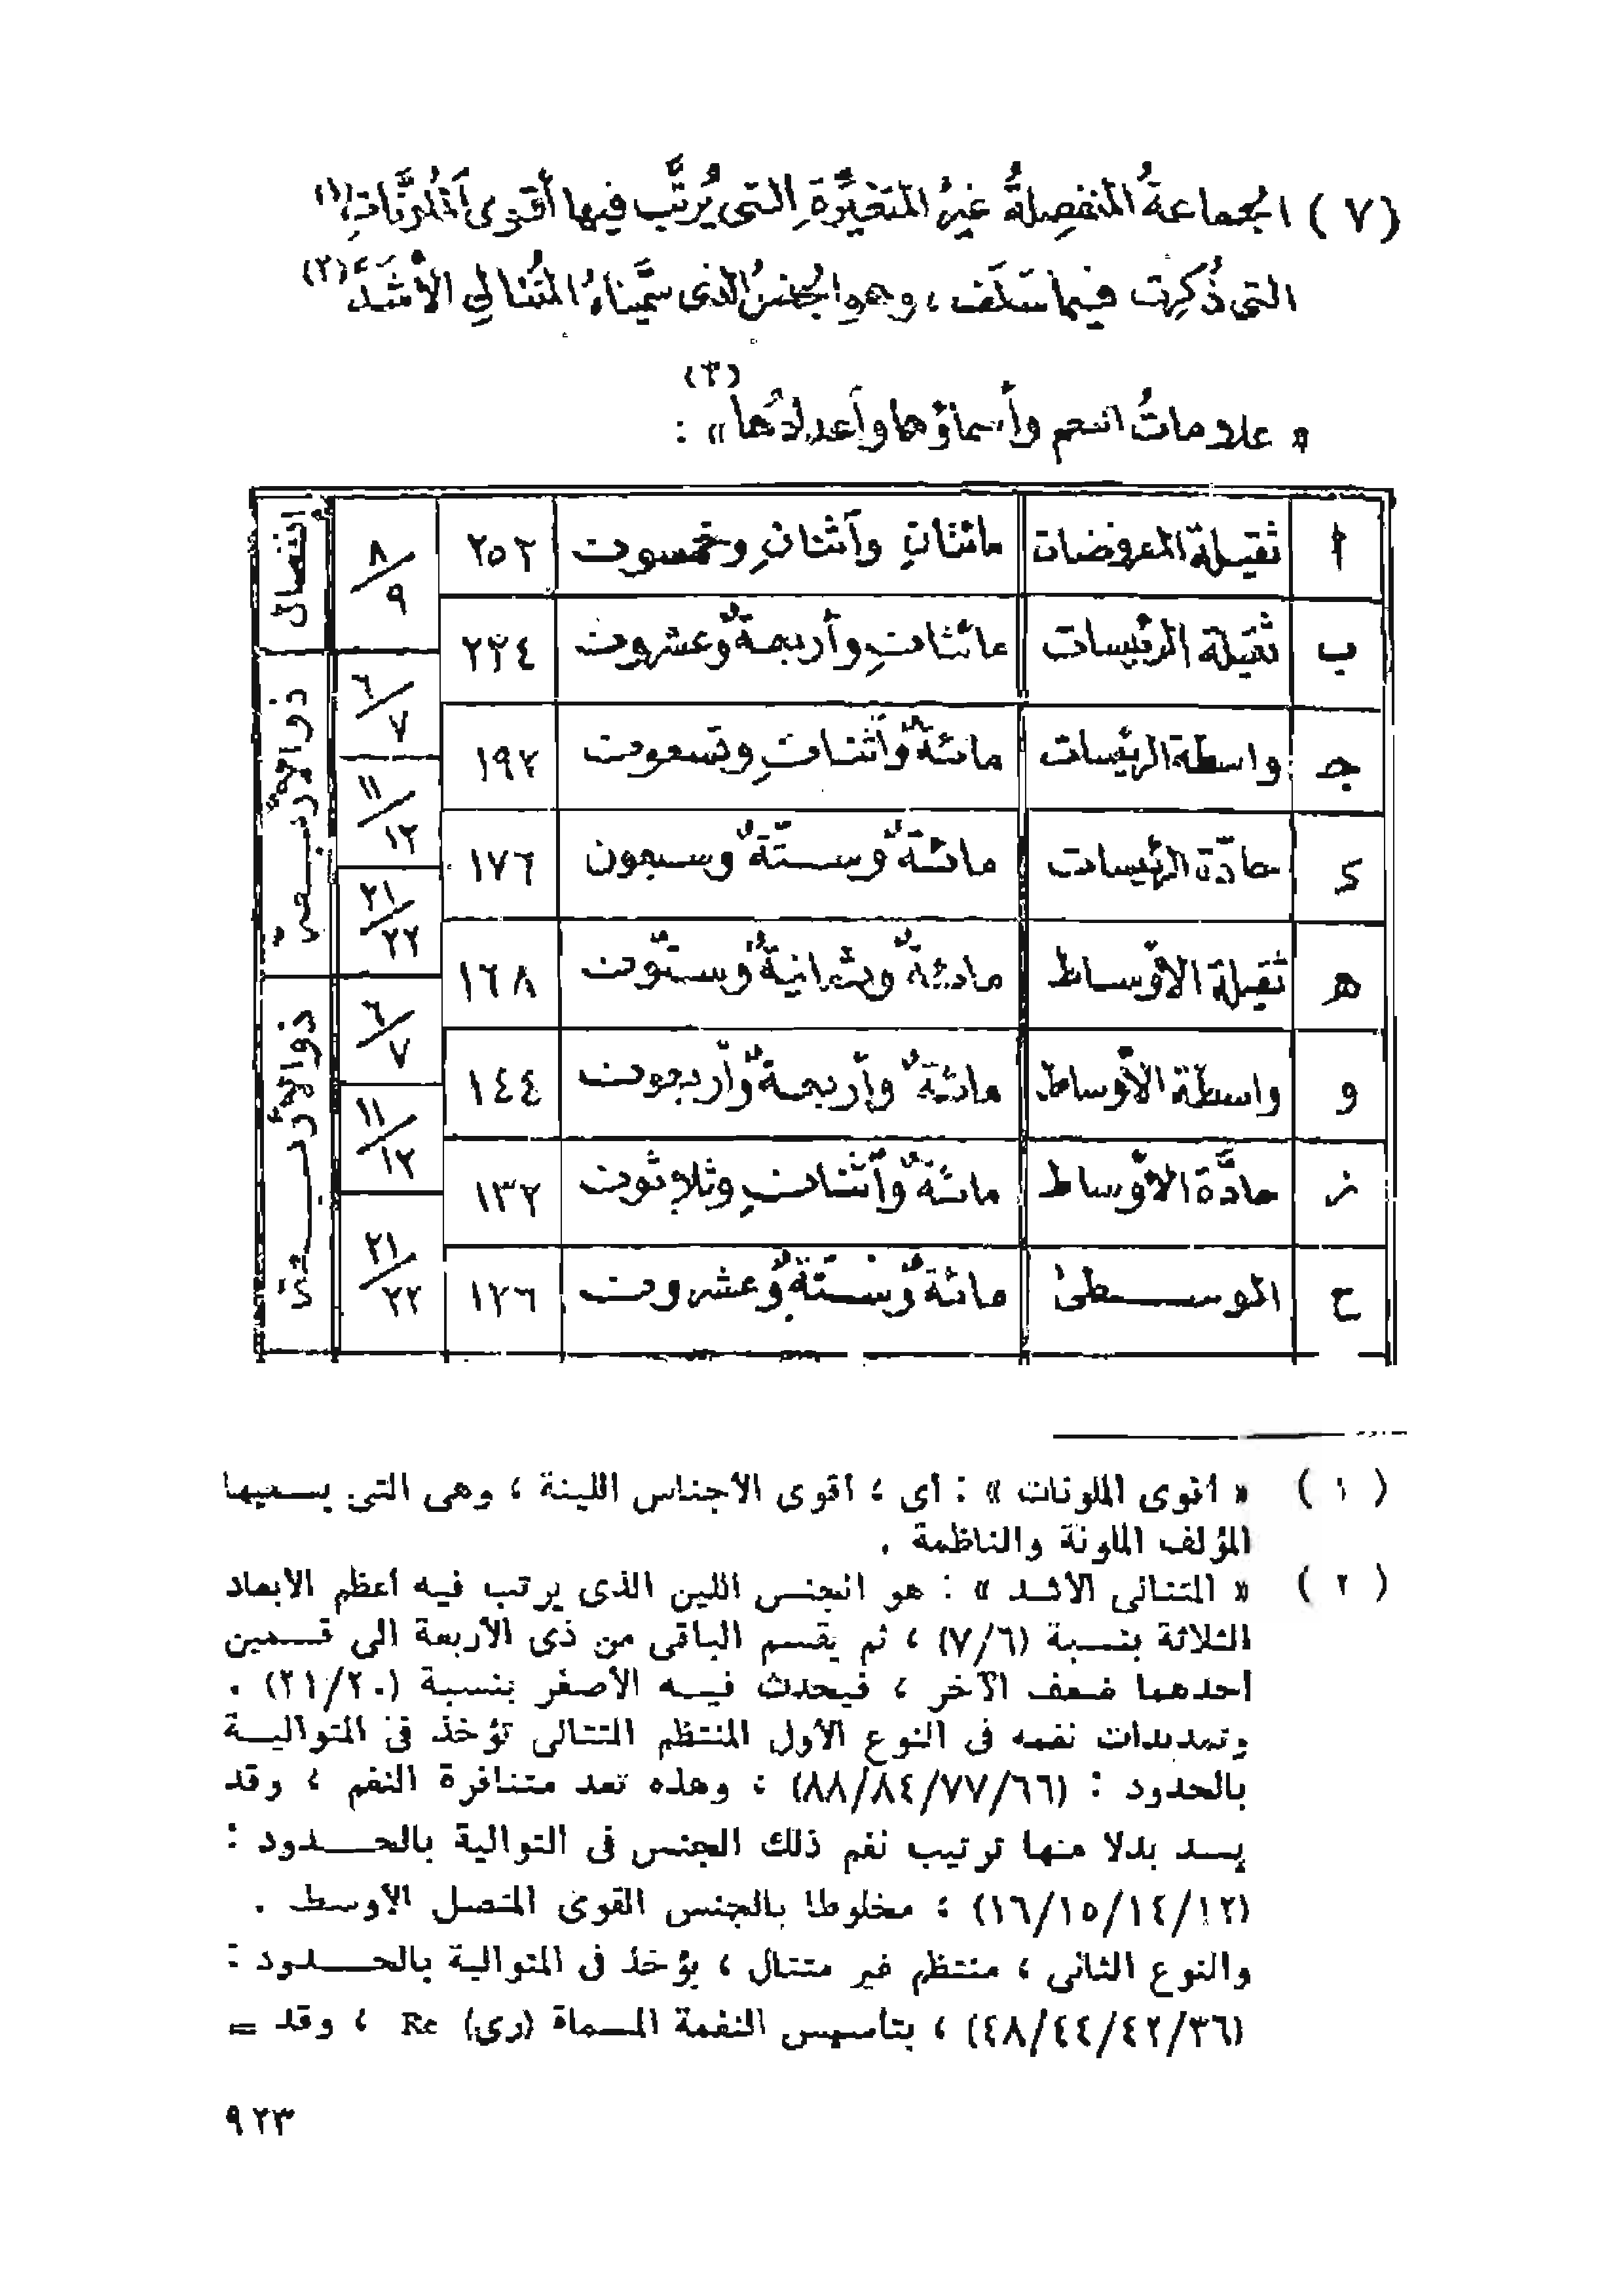 (٧) الجماعةُ المنفصِلةُ غيرُ المتغيِّرةِ التى يُرتَّب فيها أقوى المُلوَّناتِ(١)
التى ذُكِرت فيما سَلَف ، وهو الجنسُ الذى سمَّيناهُ المُتَتالِى الأشَدَّ(٢)
« علاماتُ النغم وأسماؤها وأعدادُها(٣) » :
ا ثقيلة المفروضات مائتانِ وآثنانِ وخمسون ٢٥٢ ٨/٩ إنفصال
ب ثقيلة الرئيسات مائتانِ وأربعةٌ وعشرون ٢٢٤
ج واسطة الرئيسات مائةٌ وآثنانِ وتسعون ١٩٢ ٦/٧ ذو الأربعة
د حادّة الرئيسات مائةٌ وستّةٌ وسبعون ١٧٦ ١١/١٢
ه ثقيلة الأوساط مائةٌ وثمانيةٌ وستّون ١٦٨ ٢١/٢٢
و واسطة الأوساط مائةٌ وأربعةٌ وأربعون ١٤٤ ٦/٧ ذو الأربعة
ز حادَّة الأوساط مائةٌ وآثنانِ وثلاثون ١٣٢ ١١/١٢
ح الوسطى مائةٌ وستّةٌ وعشرون ١٢٦ ٢١/٢٢
( ١ ) « أقوى الملونات » : أى ، أقوى الأجناس اللينة ، وهى التى يسميها
المؤلف الملونة والناظمة .
( ٢ ) « المتتالى الأشد » : هو الجنس اللين الذى يرتب فيه أعظم الأبعاد
الثلاثة بنسبة (٧/٦) ، ثم يقسم الباقى من ذى الأربعة الى قسمين
أحدهما ضعف الآخر ، فيحدث فيه الأصغر بنسبة (٢١/٢٠) .
وتمديدات نغمه فى النوع الأول المنتظم المتتالى تؤخذ فى المتوالية
بالحدود : (٨٨/٨٤/٧٧/٦٦) ، وهذه تعد متنافرة النغم ، وقد
يعد بدلا منها ترتيب نغم ذلك الجنس فى التوالية بالحدود :
(١٦/١٥/١٤/١٢) ، مخلوطا بالجنس القوى المتصل الأوسط .
والنوع الثانى ، منتظم غير متتال ، يؤخذ فى المتوالية بالحدود :
(٤٨/٤٤/٤٢/٣٦) ، بتأسيس النغمة المسماة (رى) Re ، وقد =
٩٢٣